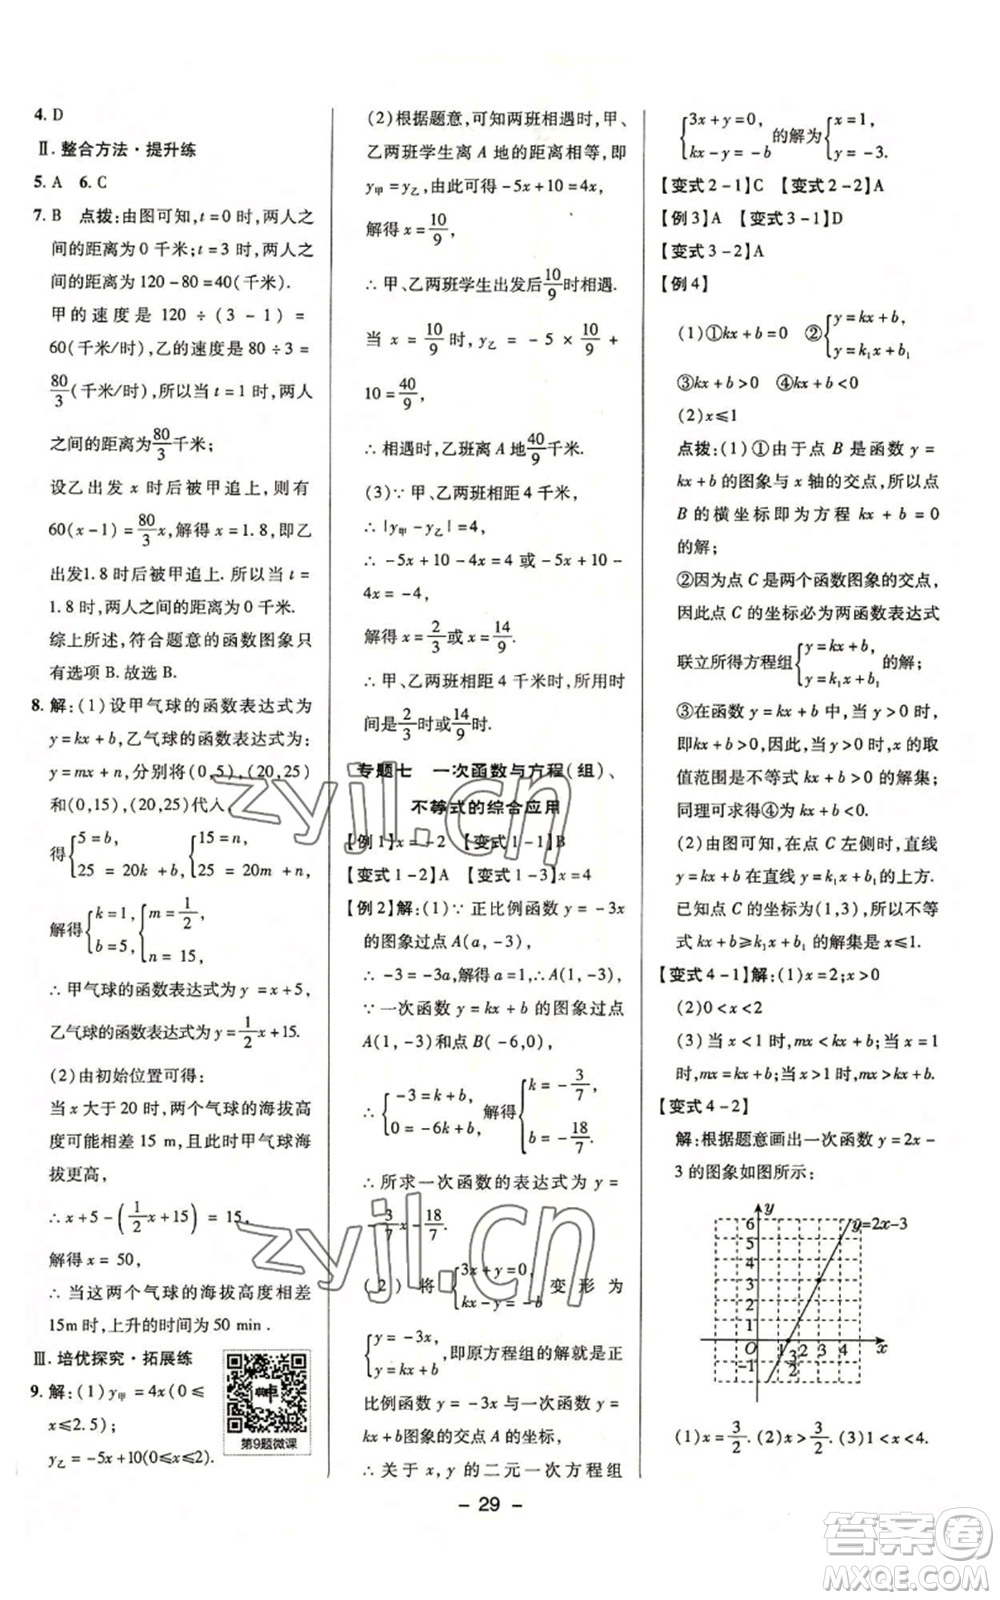 4. D
Ⅱ. 整合方法·提升练
5. A 6. C
7. B 点拨:由图可知,t=0时,两人之
间的距离为0千米;t=3时,两人之
间的距离为120-80=40(千米).
甲的速度是120÷(3-1)=
60(千米/时),乙的速度是80÷3=
80/3(千米/时),所以当t=1时,两人
之间的距离为80/3千米;
设乙出发x时后被甲追上,则有
60(x-1)=80/3x,解得x=1.8,即乙
出发1.8时后被甲追上.所以当t=
1.8时,两人之间的距离为0千米.
综上所述,符合题意的函数图象只
有选项B.故选B.
8. 解:(1)设甲气球的函数表达式为
y=kx+b,乙气球的函数表达式为:
y=mx+n,分别将(0,5),(20,25)
和(0,15),(20,25)代入,
得{5=b, 25=20k+b, {15=n, 25=20m+n,
解得{k=1, b=5, {m=1/2, n=15,
∴甲气球的函数表达式为y=x+5,
乙气球的函数表达式为y=1/2x+15.
(2)由初始位置可得:
当x大于20时,两个气球的海拔高
度可能相差15 m,此时甲气球海
拔更高,
∴x+5-(1/2x+15)=15,
解得x=50,
∴当这两个气球的海拔高度相差
15m时,上升的时间为50 min.
Ⅲ. 培优探究·拓展练
9. 解:(1)y甲=4x(0≤
x≤2.5);
y乙=-5x+10(0≤x≤2).
第9题微课
(2)根据题意,可知两班相遇时,甲、
乙两班学生离A地的距离相等,即
y甲=y乙,由此可得-5x+10=4x,
解得x=10/9,
∴甲、乙两班学生出发10/9时相遇.
当x=10/9时,y乙=-5×10/9+
10=40/9,
∴相遇时,乙班离A地40/9千米.
(3)∵甲、乙两班相距4千米,
∴|y甲-y乙|=4,
∴-5x+10-4x=4或-5x+10-
4x=-4,
解得x=2/3或x=14/9.
∴甲、乙两班相距4千米时,所用时
间是2/3时或14/9时.
专题七 一次函数与方程(组)、
不等式的综合应用
【例1】x=-2 【变式1-1】B
【变式1-2】A 【变式1-3】x=4
【例2】解:(1)∵正比例函数y=-3x
的图象过点A(a,-3),
∴-3=-3a,解得a=1,∴A(1,-3).
∵一次函数y=kx+b的图象过点
A(1,-3)和点B(-6,0),
∴{-3=k+b, 0=-6k+b, 解得{k=-3/7, b=-18/7.
∴所求一次函数的表达式为y=
-3/7x-18/7.
(2)将{3x+y=0, kx-y=-b 变形为
{y=-3x, y=kx+b, 即原方程组的解为
正比例函数y=-3x与一次函数y=
kx+b的图象的交点A的坐标,
∴关于x,y的二元一次方程组
{3x+y=0, kx-y=-b 的解为{x=1, y=-3.
【变式2-1】C 【变式2-2】A
【例3】A 【变式3-1】D
【变式3-2】A
【例4】
(1)①kx+b=0 ②{y=kx+b, y=k₁x+b₁
③kx+b>0 ④kx+b<0
(2)x≤1
点拨:(1)①由于点B是函数y=
kx+b的图象与x轴的交点,所以点
B的横坐标即为方程kx+b=0
的解;
②因为点C是两个函数图象的交点,
因此点C的坐标必为两函数表达式
联立所得方程组{y=kx+b, y=k₁x+b₁ 的解;
③在函数y=kx+b中,当y>0时,
kx+b>0,因此,当函数值y的取
值为正时,x的取值范围是不等式
kx+b>0的解集;
同理可求得④为kx+b<0.
(2)由图可知,在点C左侧时,直线
y=kx+b在直线y=k₁x+b₁的上方.
已知点C的坐标为(1,3),所以不等
式kx+b≥k₁x+b₁的解集是x≤1.
【变式4-1】解:(1)x=2;x>0
(2)0<x<2
(3)当x<1时,mx<kx+b;当x=1
时,mx=kx+b;当x>1时,mx>kx+b.
【变式4-2】
解:根据题意画出一次函数y=2x-
3的图象如图所示:
y
y=2x-3
6
5
4
3
2
1
O 1 2 3 4 x
3/2
-1
(1)x=3/2. (2)x>3/2. (3)1<x<4.
- 29 -
zyjl.cn
zyjl.cn
答案圈
MXQE.COM